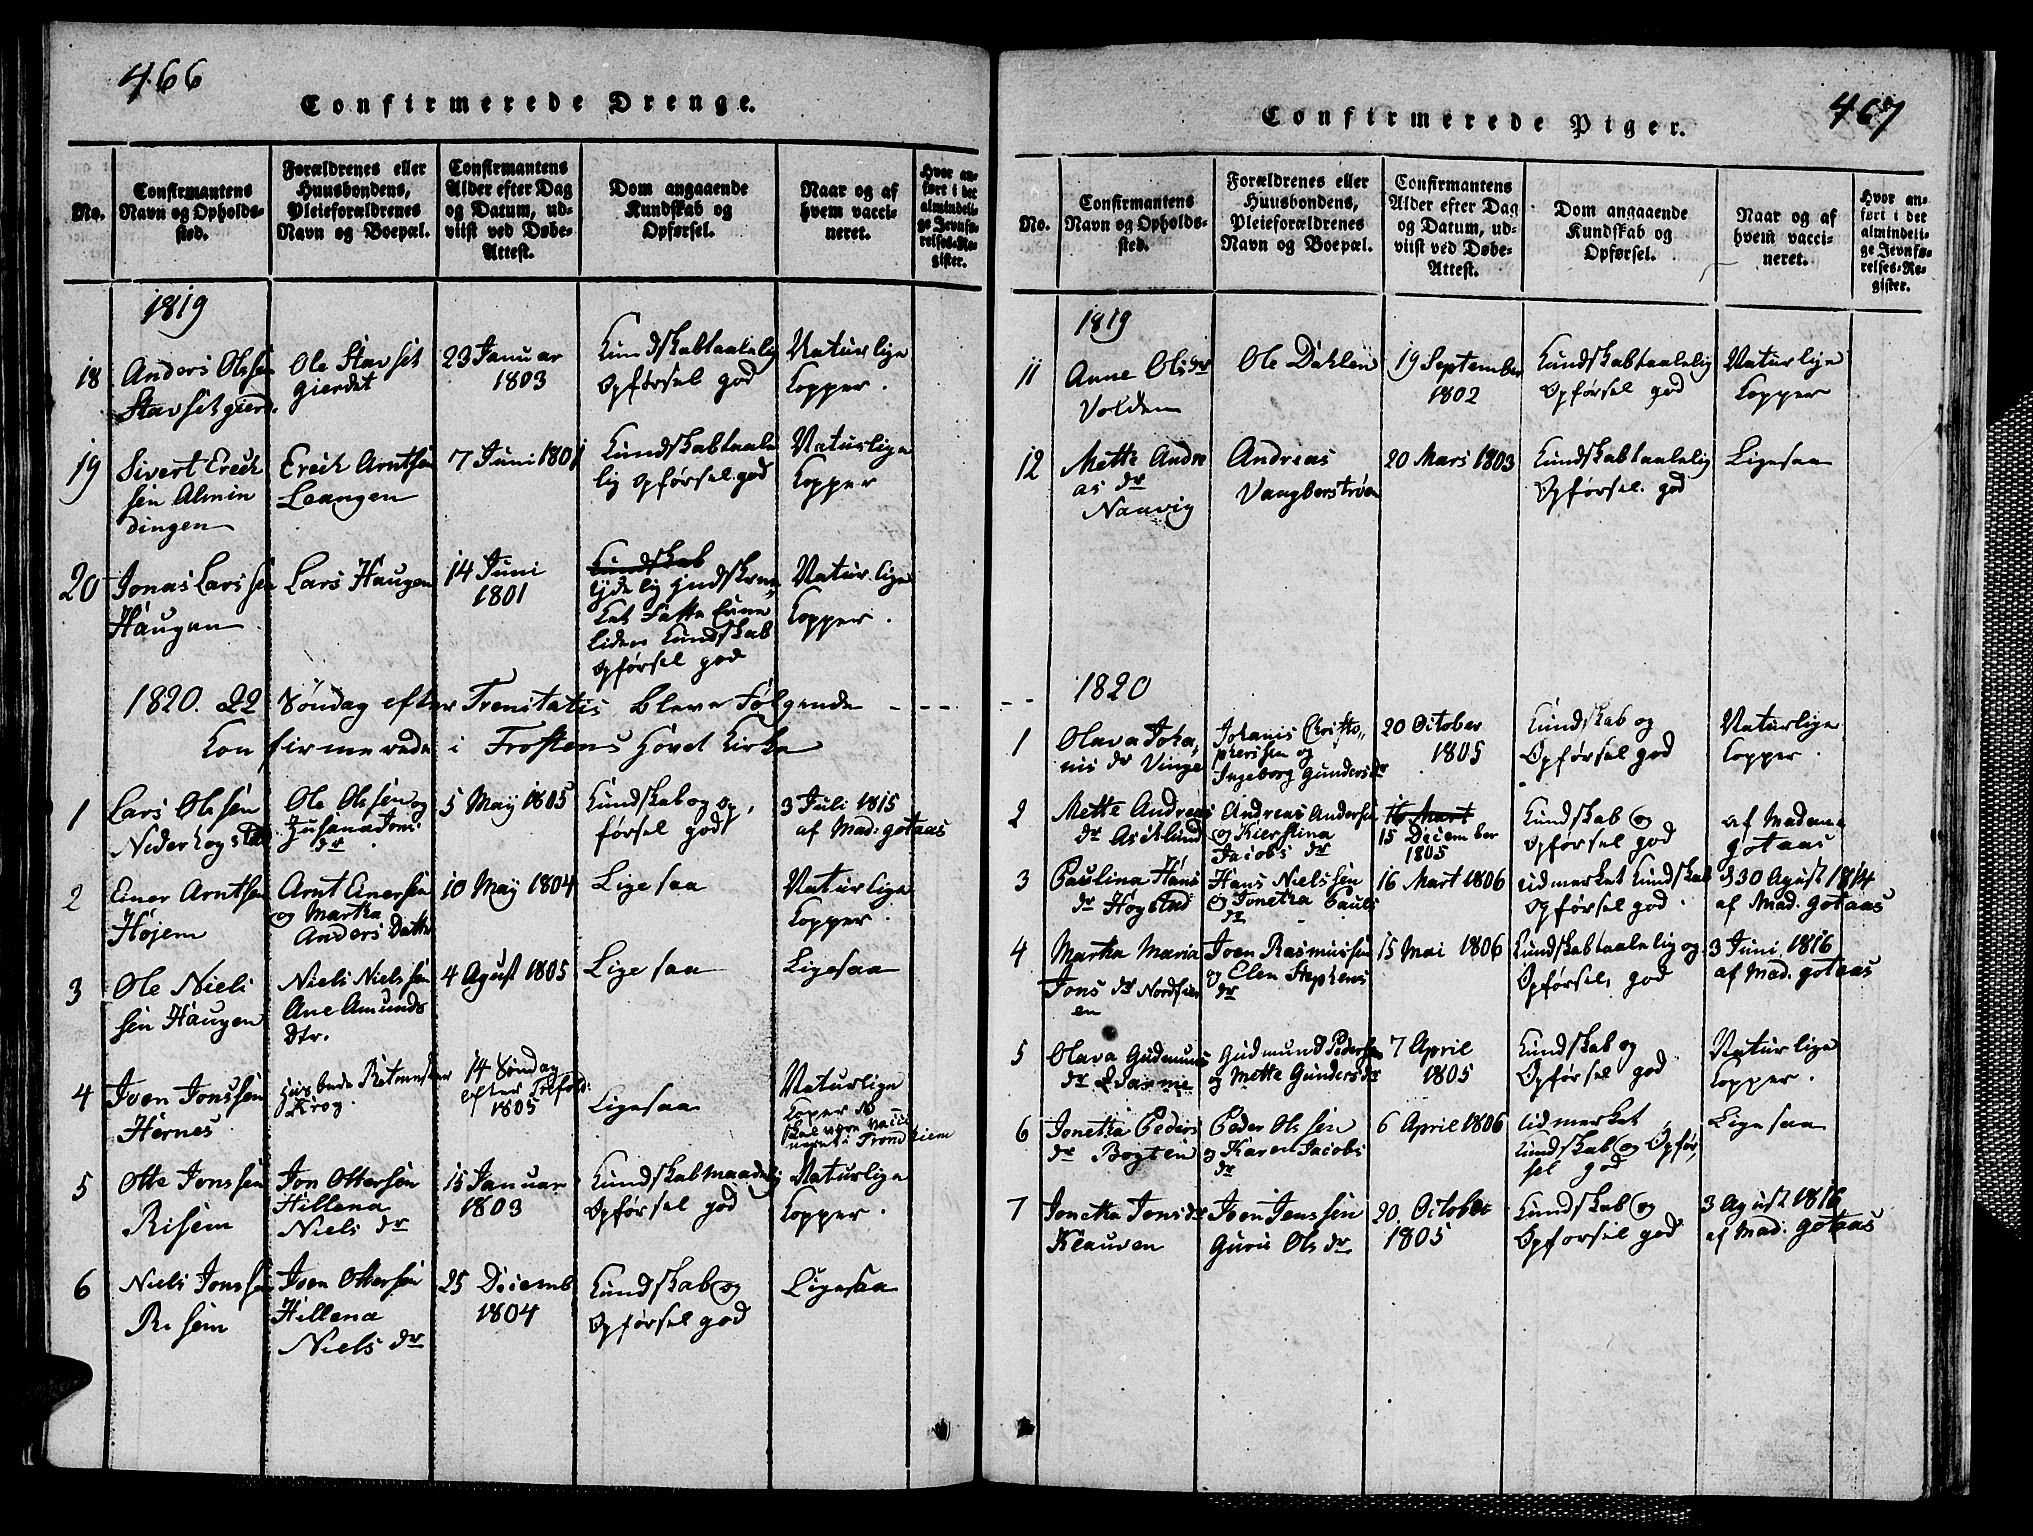 466
Confirmerede Drenge.
No.
Confirmantens
Navn og Opholds-
sted.
Forældrenes eller
Huusbondens,
Pleieforældrenes
Navn og Boepæl.
Confirmantens
Alder efter Dag
og Datum, ud-
viist ved Døbe-
Attest.
Dom angaaende
Kundskab og
Opførsel.
Naar og af
hvem vacci-
neret.
Hvor an-
ført i det
almindeli-
ge Jevnfø-
relses-Re-
gister.
1819
18
Anders Olssen
Stavsetgierd.
Ole Stavset
gierdet
23 Januar
1803
Kundskabtaalelig
Opførsel god
Naturlige
Kopper.
19
Sivert Erich
sen Almin
dingen
Erich Arntsen
Leangen
7 Juni 1801
Kundskabtaale
lig Opførsel god
Naturlige
Kopper
20
Jonas Larssen
Haugen
Lars Haugen
14 Juni
1801
Kundskab
Yderlig Indskræn
ket Fatte Evne
liden Kundskab
Opførsel god
Naturlige
Kopper.
1820. 22 Søndag efter Trenitatis Bleve Følgende - - -
Konfirmerede i Trostens Hovet Kirke
1
Lars Olssen
Nederhogstad
Ole Olssen og
Zusana Jons
dr.
5 May 1805
Kundskab og Op,
førsel god
3 Juli 1815
af Mad: gotaas
2
Einer Arntsen
Højem
Arnt Enersen
og Martha
Anders Datter
10 May 1804
Ligesaa
Naturlige
Kopper.
3
Ole Niels
sen Haugen
Niels Nielssen
Ane Amunds
Dtr.
4 Agust 1805
Ligesaa
Ligesaa
4
Iven Jonssen
Hernes
Ritmester
Krog.
14 Søndag
efter Trefold:
1805
Ligesaa
Naturlige
Koper
skal være Vacci
neret i Trondhiem
5
Otte Jonssen
Risem
Jon Ottersen
Hillena
Niels dr
15 Januar
1803
Kundskabmaadelig
Opførsel god
Naturlige
Kopper.
6
Niels Jonssen
Risem
Iven Ottersen
Hillena
Niels dr
25 Decemb
1804
Kundskab og
Opførsel god
Ligesaa
467
Confirmerede Piger.
No.
Confirmantens
Navn og Opholds-
sted.
Forældrenes eller
Huusbondens,
Pleieforældrenes
Navn og Boepæl.
Confirmantens
Alder efter Dag
og Datum, ud-
viist ved Døbe-
Attest.
Dom angaaende
Kundskab og
Opførsel.
Naar og af
hvem vacci-
neret.
Hvor an-
ført i det
almindeli-
ge Jevnfø-
relses-Re-
gister.
1819
11
Anne Olsdr
Volden
Ole Dahlen
19 September
1802
Kundskabtaalelig
Opførsel god
Naturlige
Kopper
12
Mette Andre
as dr
Naavig
Andreas
Vangberstrøen
20 Mars 1803
Kundskabtaalelig
Opførsel god
Ligesaa
- - 1820
1
Olava Joha,
nis dr Vinge
Johanis Christo,
phersen og
Ingeborg Gundersdr
20 October
1805
Kundskab og
Opførsel god
Naturlige
Kopper.
2
Mette Andreas
dr Asiklund
Andreas Andersen
og Kierstina
Jacobs dr
16 Mart
15 Decem ber
1805
Kundskab og
Opførsel god
af Madame
gotaas
3
Paulina Hans
dr Hogstad
Hans Nielssen
og Jonetha Pauls
dr
16 Mart 1806
udmerket Kundskab
Opførsel god.
d 30 Agust 1814
af Mad. gotaas
4
Martha Maria
Jons dr Nordsien
en
Iven Rasmussen
og Elen Stephens
dr
15 Mai 1806
Kundskabtaalelig og
Opførsel, god
3 Juni, 1816
af Mad. gotaas
5
Olava Gudmuns
dr
Gudmund Pedersen
og Mette Gundersdr
7 April
1805
Kundskab og
Opførsel god
Naturlige
Kopper.
6
Jonetha Peders
dr Bogten
Peder Olssen
og Karen Jacobs
dr
6 April 1806
udmerket
Kundskab og Opfør,
sel god
Ligesaa
7
Jonetha Jonsdr
Klauven
Iven Jenssen
Guru Ols dr
20. October
1805
Kundskab og
Opførsel god
3 Agust 1816
af Mad: gotaas